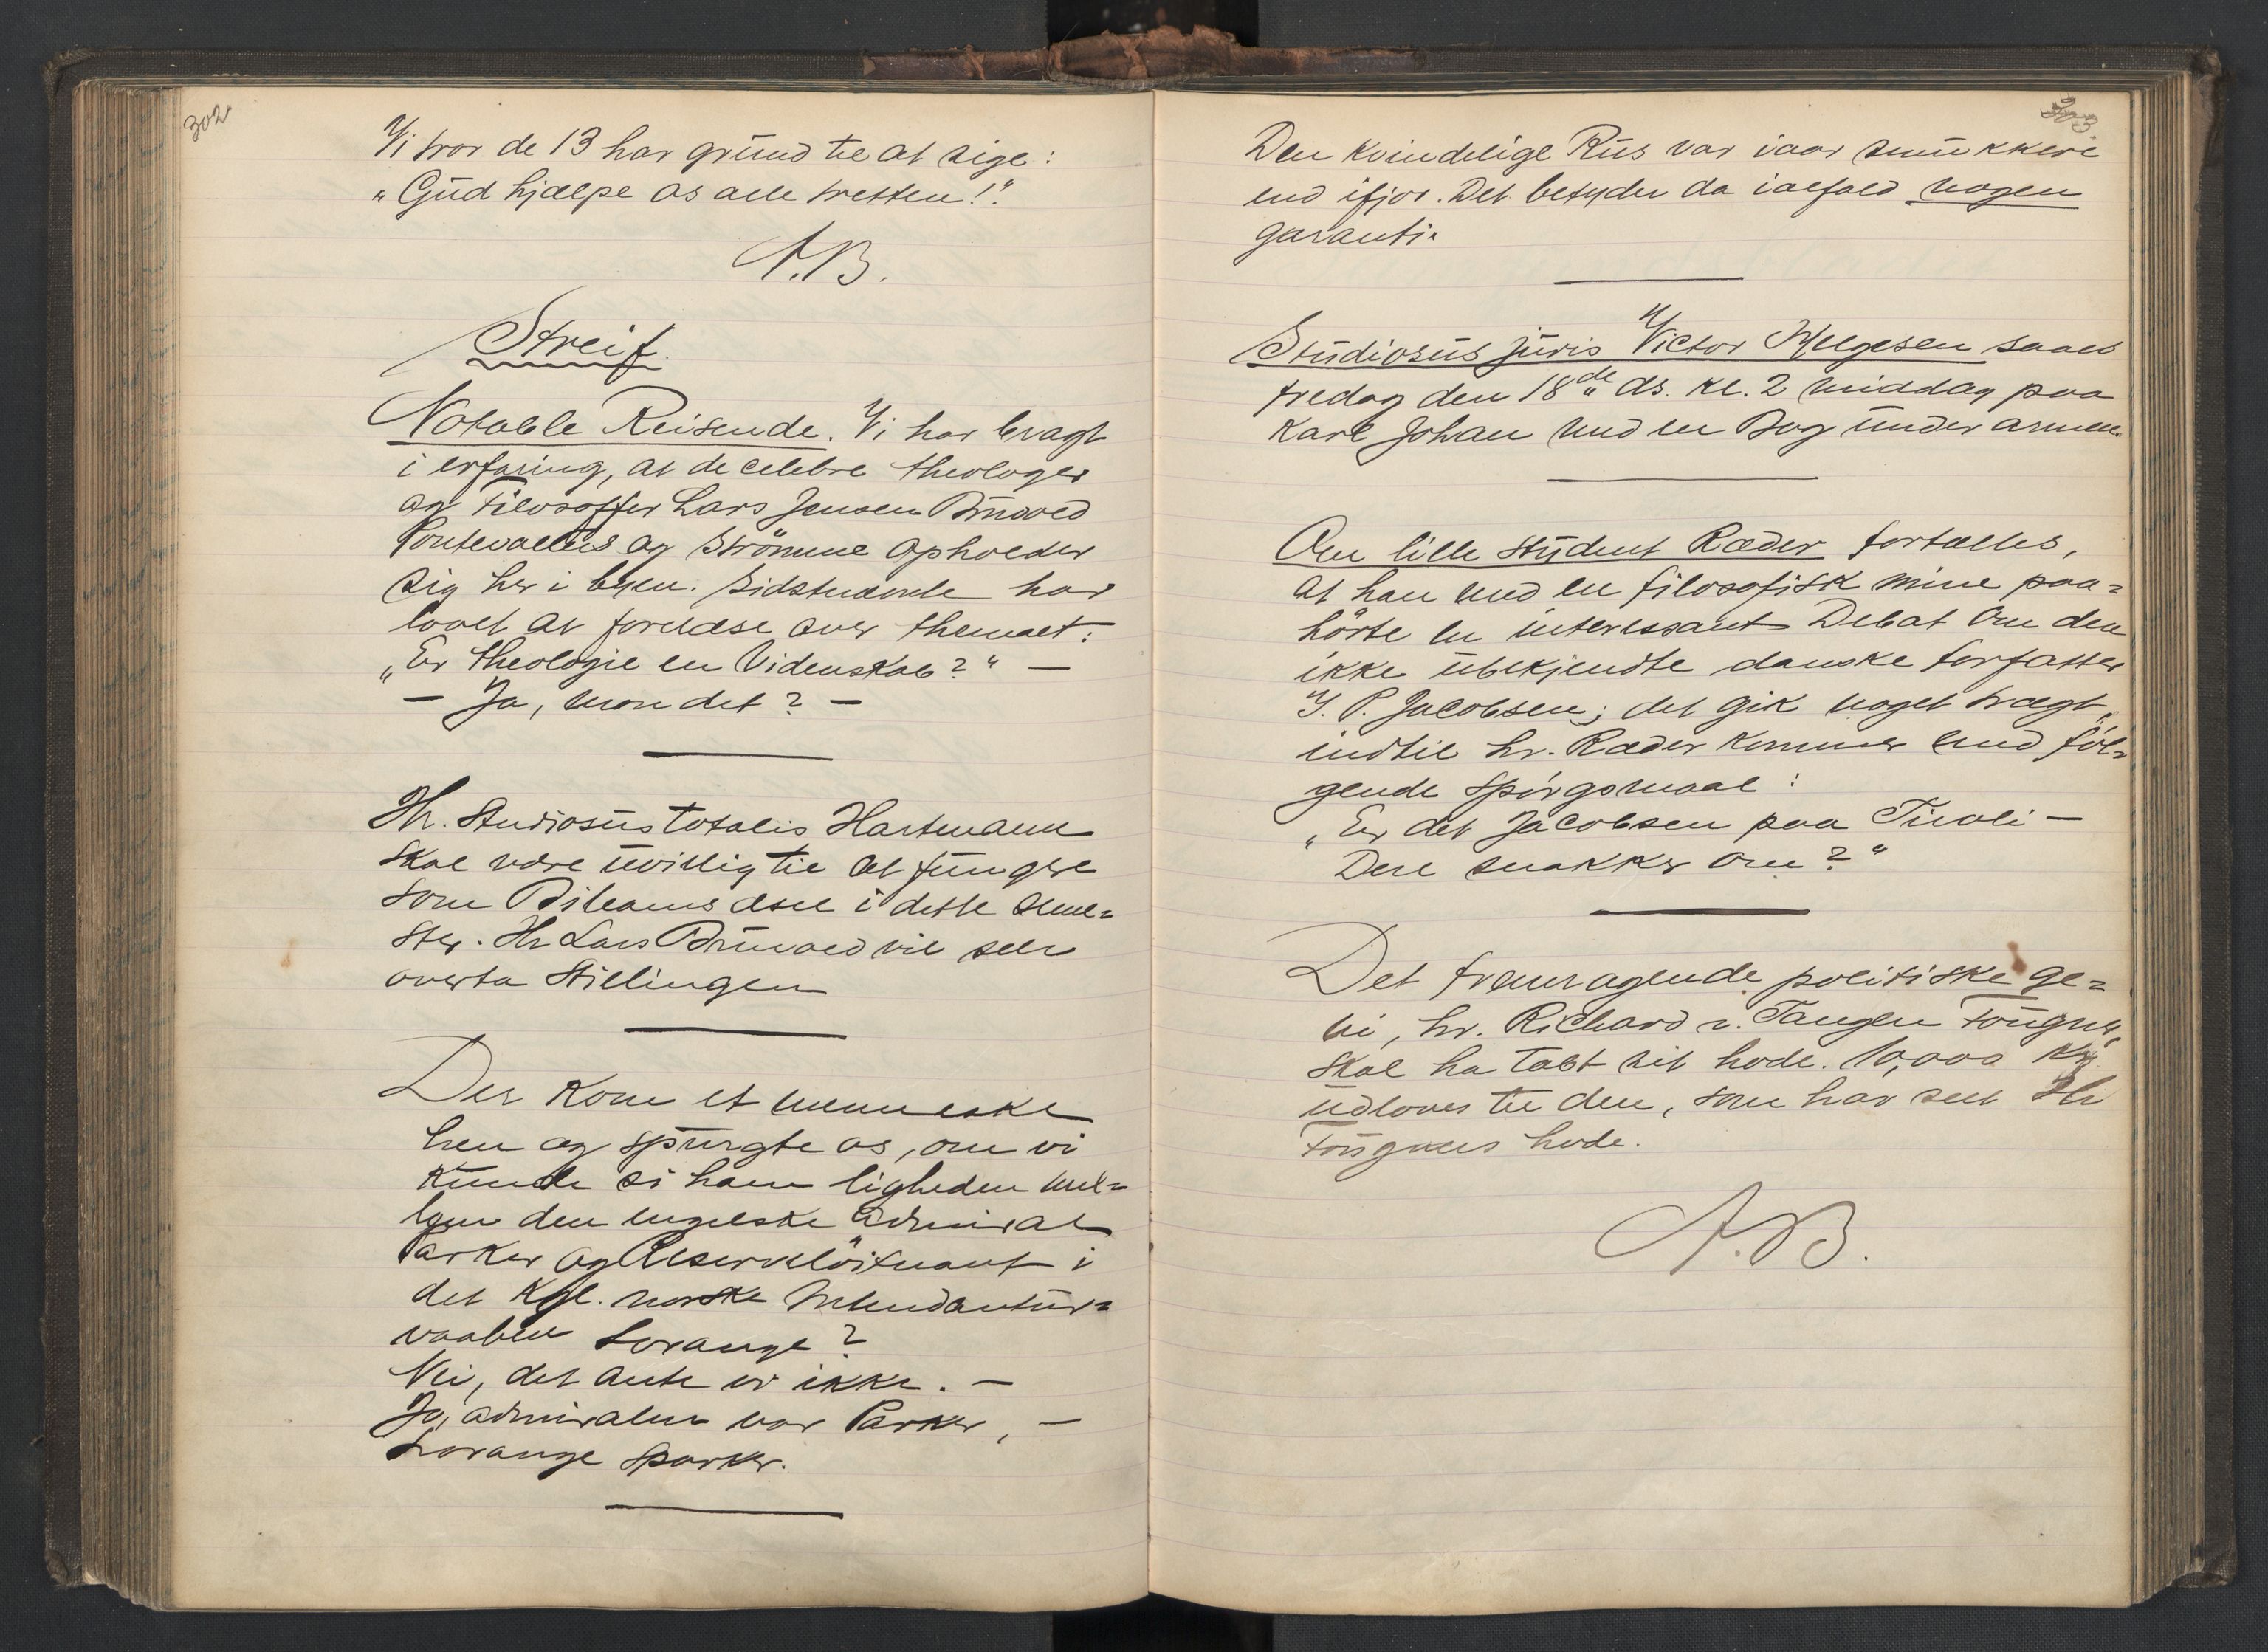 302
Vi tror de 13 har grund til at sige:
"Gud hjælpe os alle tretten!"
A.B.
Streif.
Notable Reisende. Vi har bragt
i erfaring, at de celebre theologer
og Filosoffer Lars Jensen Brunvold
Pontevallus og Strömme opholder
sig her i byen. Sidstnævnte har
lovet at forelæse over themaet:
"Er theologie en Videnskab?" —
— Ja, mon det? —
Hr. Studiosus totalis Hartmann
skal være uvillig til at fungere
som Bileams æsel i dette seme=
ster. Hr Lars Brunvold vil selv
overta Stillingen
Der kom et menneske
hen og spurgte os, om vi
kunde si ham ligheden mel=
lem den engelske admiral
Parker og Reserveløitnant i
det kgl. norske Intendantur=
vaaben Lorange?
Nei, det ante vi ikke. —
Jo, admiralen var Parker, —
Lorange sparker.
303
Den kvindelige Rus var iaar smukkere
end ifjor. Det betyder da ialfald nogen
garanti.
Studiosus juris Victor Helgesen saaes
fredag den 18de ds. kl. 2 middag paa
Karl Johan med en Bog under armen.
Om lille student Ræder fortælles,
at han med en filosofisk mine paa=
hörte en interessant Debat om den
ikke ubekjendte danske forfatter
J. P. Jacobsen; det gik noget trægt,
indtil hr. Ræder kommer med föl=
gende spörgsmaal:
"Er det Jacobsen paa Tivoli —
Dere snakker om?"
Det fremragende politiske ge=
ni, hr. Richard v. Tangen
skal ha tabt sit hode. 10,000 kr.
udloves til den, som har seet Hr
hode.
A.B.